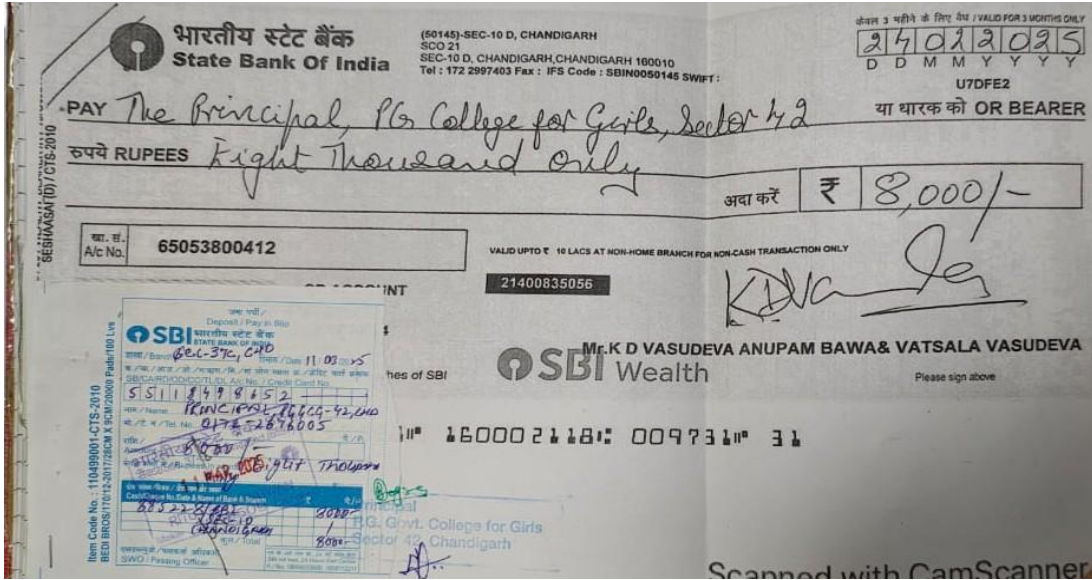 केवल 3 महीने के लिए वैध / VALID FOR 3 MONTHS ONLY
भारतीय स्टेट बैंक
State Bank Of India
(50145)-SEC-10 D, CHANDIGARH
SCO 21
SEC-10 D, CHANDIGARH,CHANDIGARH 160010
Tel : 172 2997403 Fax : IFS Code : SBIN0050145 SWIFT :
24022025
D D M M Y Y Y Y
U7DFE2
PAY The Principal, PG College for Girls, Sector 42
या धारक को OR BEARER
रुपये RUPEES Eight Thousand Only
अदा करें ₹ 8,000/-
SESHAASAI (D) / CTS-2010
खा. सं.
A/c No. 65053800412
VALID UPTO ₹ 10 LACS AT NON-HOME BRANCH FOR NON-CASH TRANSACTION ONLY
21400835056
Mr.K D VASUDEVA ANUPAM BAWA& VATSALA VASUDEVA
SBI Wealth
Please sign above
hes of SBI
160002118 009731 31
Item Code No. : 110499001-CTS-2010
BEDI BROS/170/12-2017/28CM X 9CM/20000 Pads/100 Lvs
Deposit / Pay in Slip
SBI भारतीय स्टेट बैंक
STATE BANK OF INDIA
Sec-37C, CHD
Date 11/03/2025
55118498652
Name PRINCIPAL, PGGCG-42, CHD
Tel. No. 0172-2676005
8000/-
Eight Thousand
MAR 2025
Cash/Cheque No./Date & Name of Bank & Branch
8000-
SEC-10
CHANDIGARH
Total 8000-
SWO / Passing Officer
Principal
P.G. Govt. College for Girls
Sector 42, Chandigarh
Scanned with CamScanner